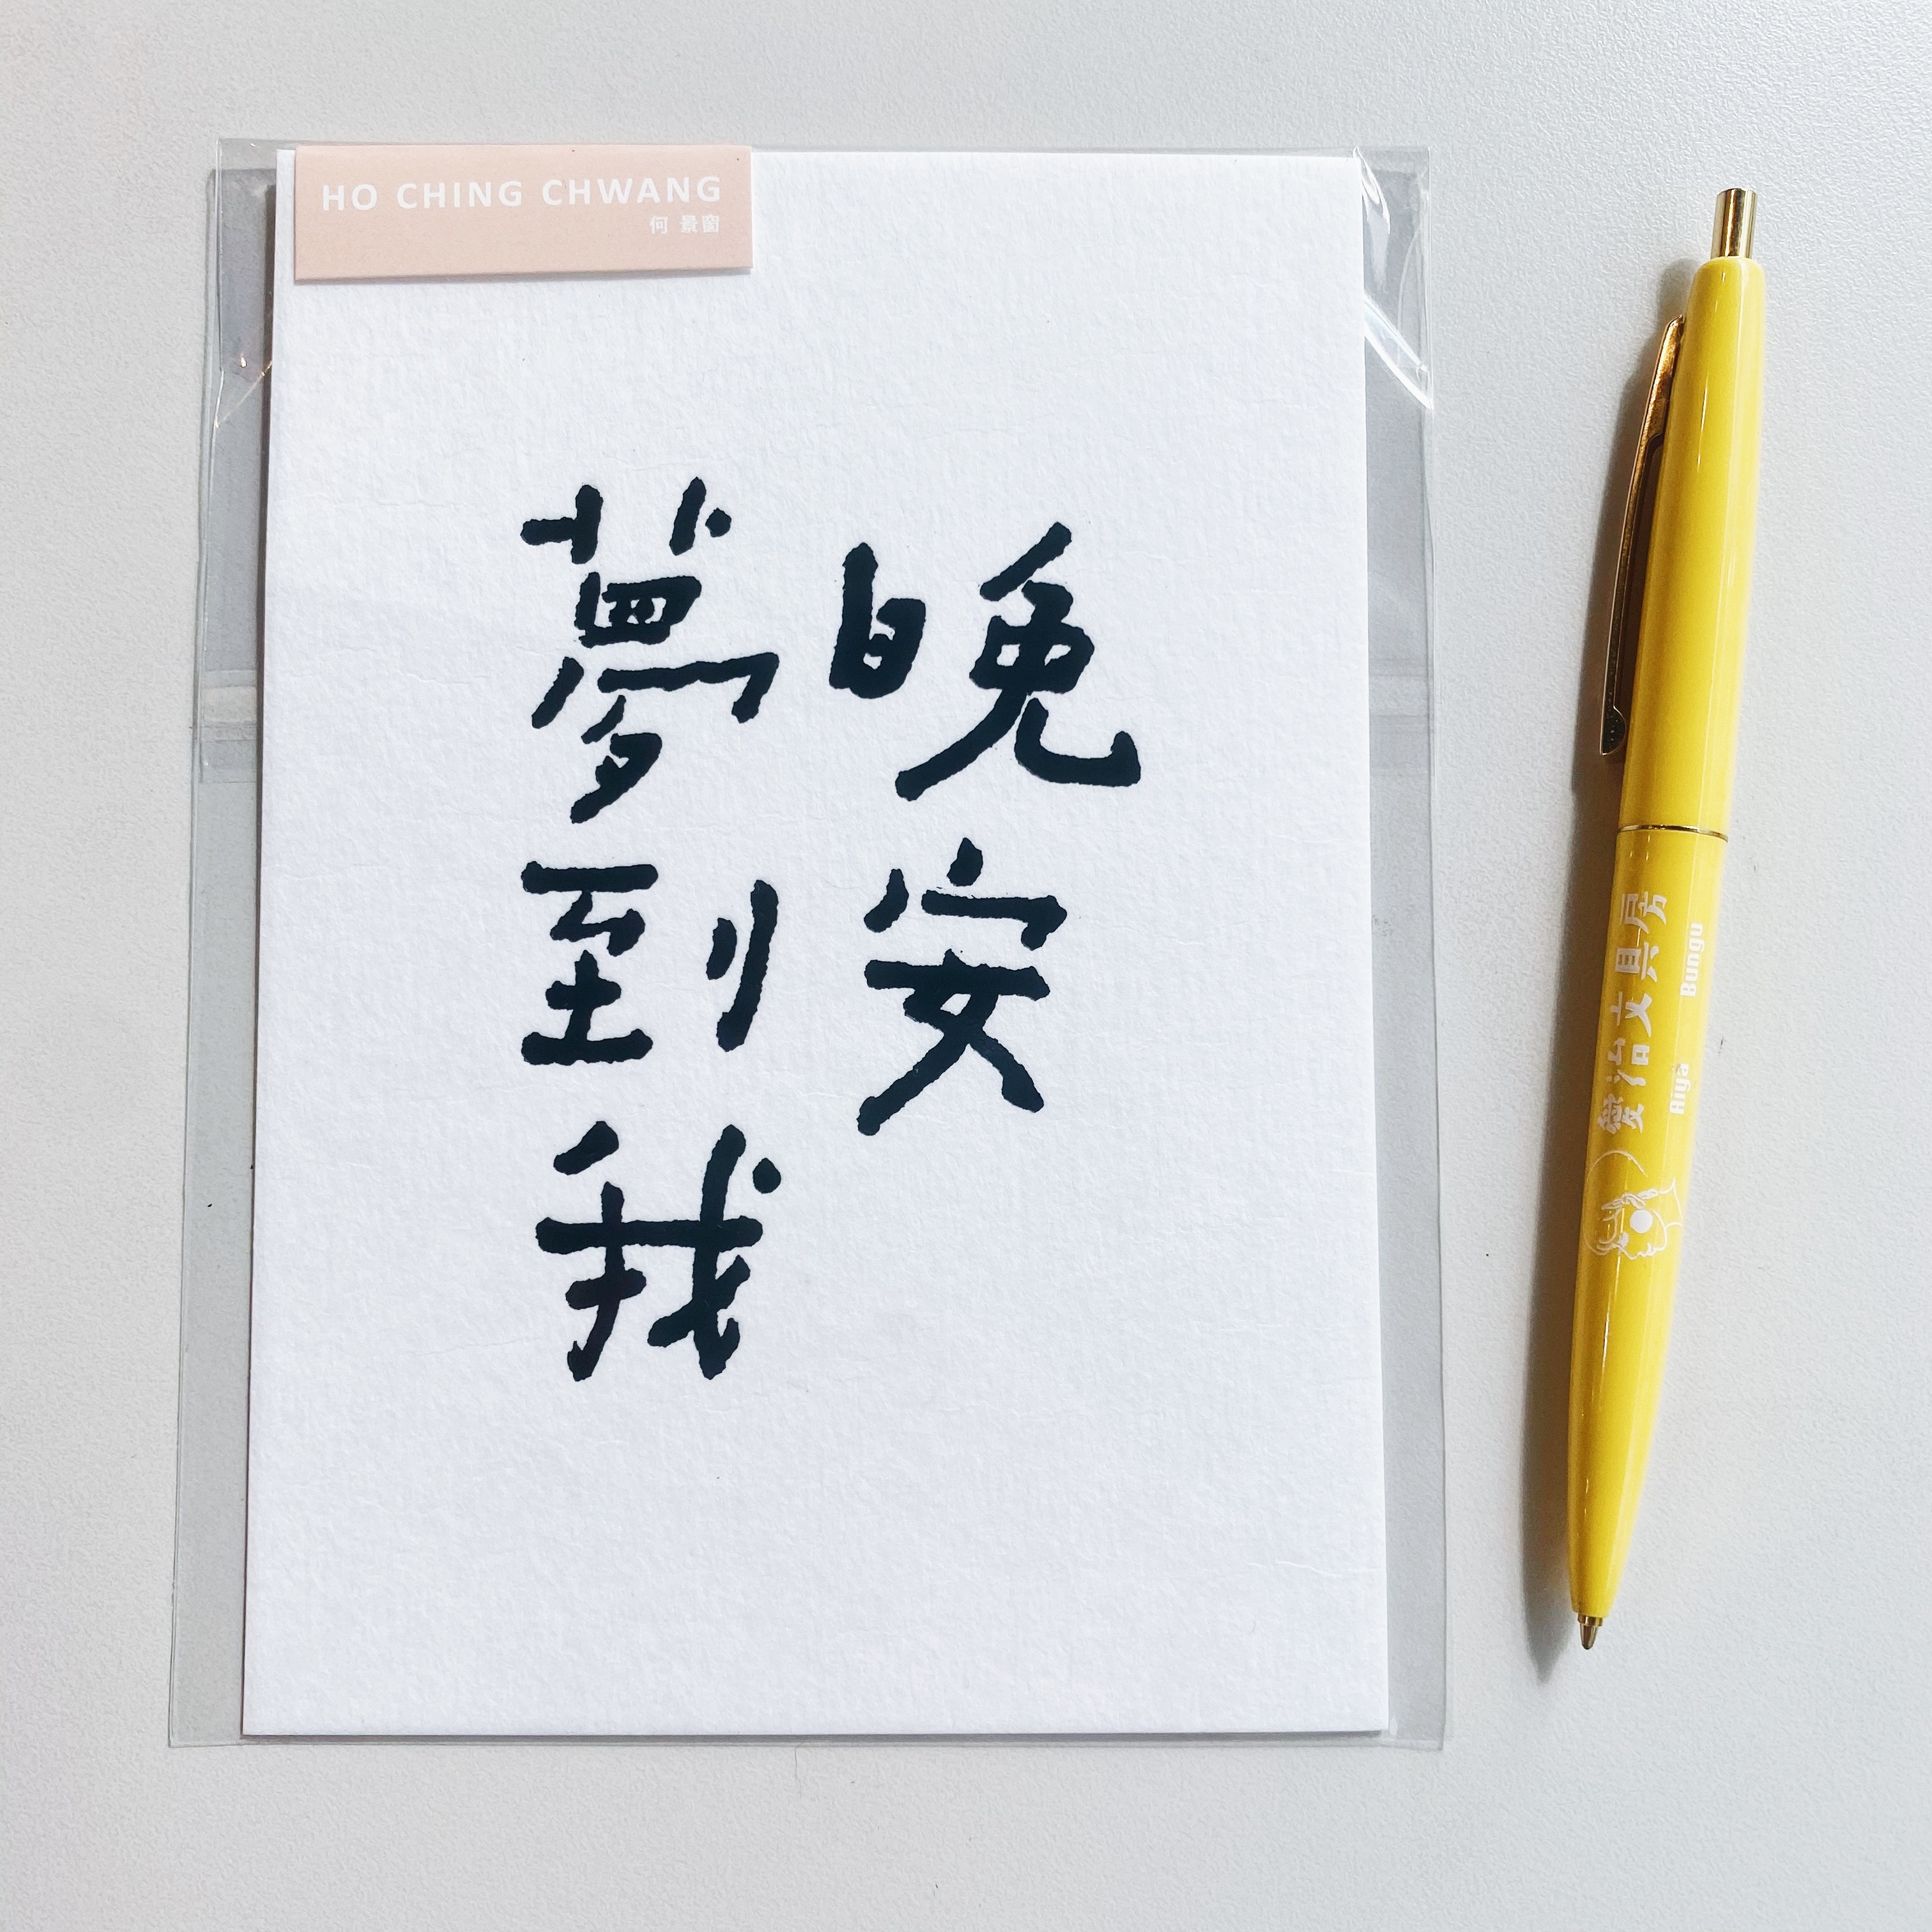 HO CHING CHWANG
何 景窗
晚安
夢到我
愛治文具房
Aiya Bungu